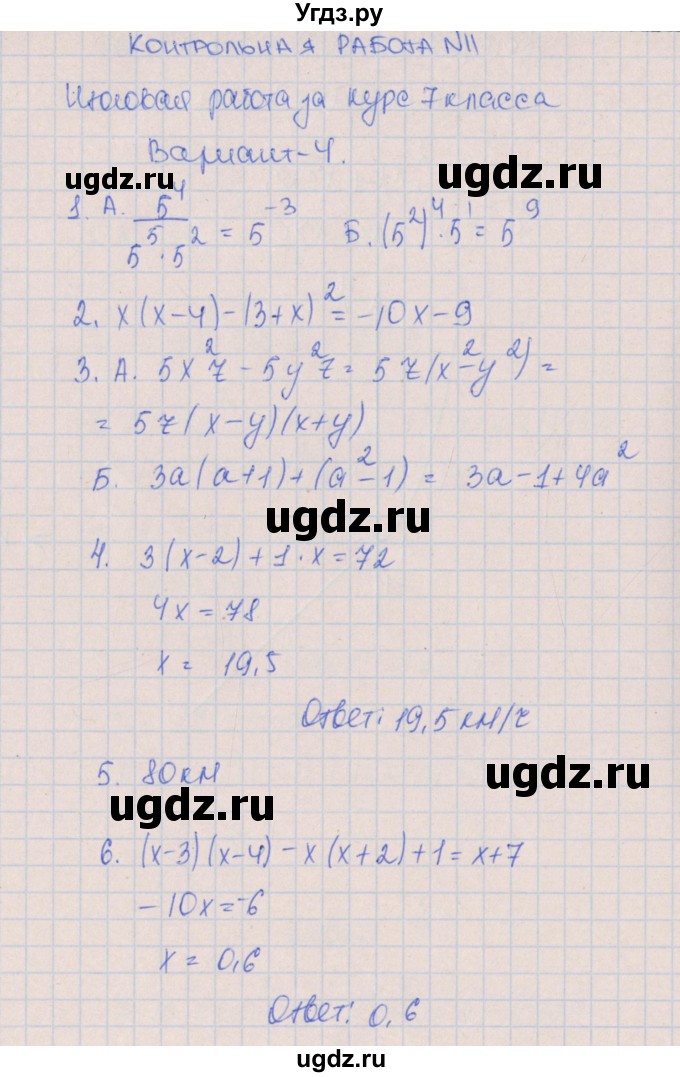 Угдз.ру
КОНТРОЛЬНАЯ РАБОТА N11
Итоговая работа за курс 7 класса
Вариант-4.
ugdz.ru ugdz.ru
1. А. 5⁴/(5⁵·5²) = 5⁻³ Б. (5²)⁴·5¹ = 5⁹
2. x(x-4)-(3+x)² = -10x-9
3. А. 5x²z - 5y²z = 5z(x²-y²) =
= 5z(x-y)(x+y)
Б. 3a(a+1)+(a²-1) = 3a-1+4a²
ugdz.ru
4. 3(x-2)+1·x=72
4x = 78
x = 19,5
Ответ: 19,5 км/ч
5. 80км
ugdz.ru ugdz.ru
6. (x-3)(x-4)-x(x+2)+1=x+7
-10x=-6
x = 0,6
Ответ: 0,6
ugdz.ru